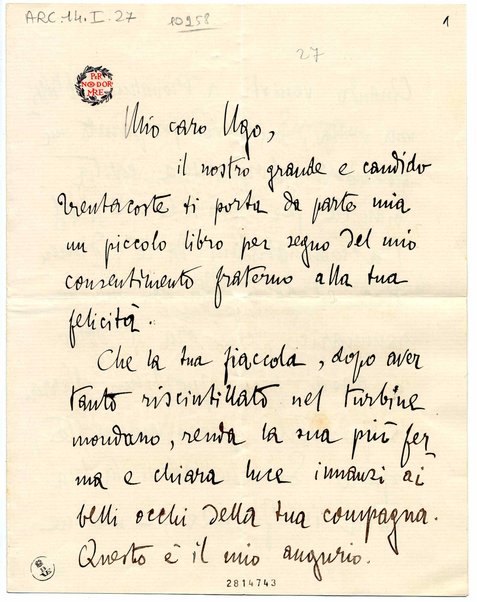 ARC.14.I.27
10958
1
27
PER
NON DOR
MIRE
Mio caro Ugo,
il nostro grande e candido
Trentacoste ti porta da parte mia
un piccolo libro per segno del mio
consentimento fraterno alla tua
felicità.
Che la tua fiaccola, dopo aver
tanto riscintillato nel turbine
mondano, renda la sua più fer-
ma e chiara luce innanzi ai
belli occhi della tua compagna.
Questo è il mio augurio.
2814743